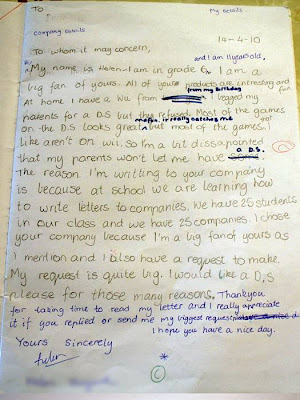 To
My Details
Company Details
14-4-10
To whom it may concern,
and I am 11yrsold.
My name is Helen-I am in grade 6. I am a
big fan of yours. All of your products are interesting and fun
from my birthday
At home I have a Wii from I begged my
parents for a D.S but they refused. Most of the games
maybe it really catches me
on the D.S looks great but most of the games I got
like aren't on wii. So I'm a bit dissapointed
a D.S.
that my parents won't let me have
The reason I'm writting to your company
is because at school we are learning how
to write letters to companies. We have 25 students
in our class and we have 25 companies. I chose
your company because I'm a big fan of yours as
I mention and I also have a request to make.
My request is quite big. I would like a D.S
please for those many reasons. Thankyou
for taking time to read my letter and I really appreciate
it if you replied or send me my biggest request
I hope you have a nice day.
Yours Sincerely
Helen
*
C